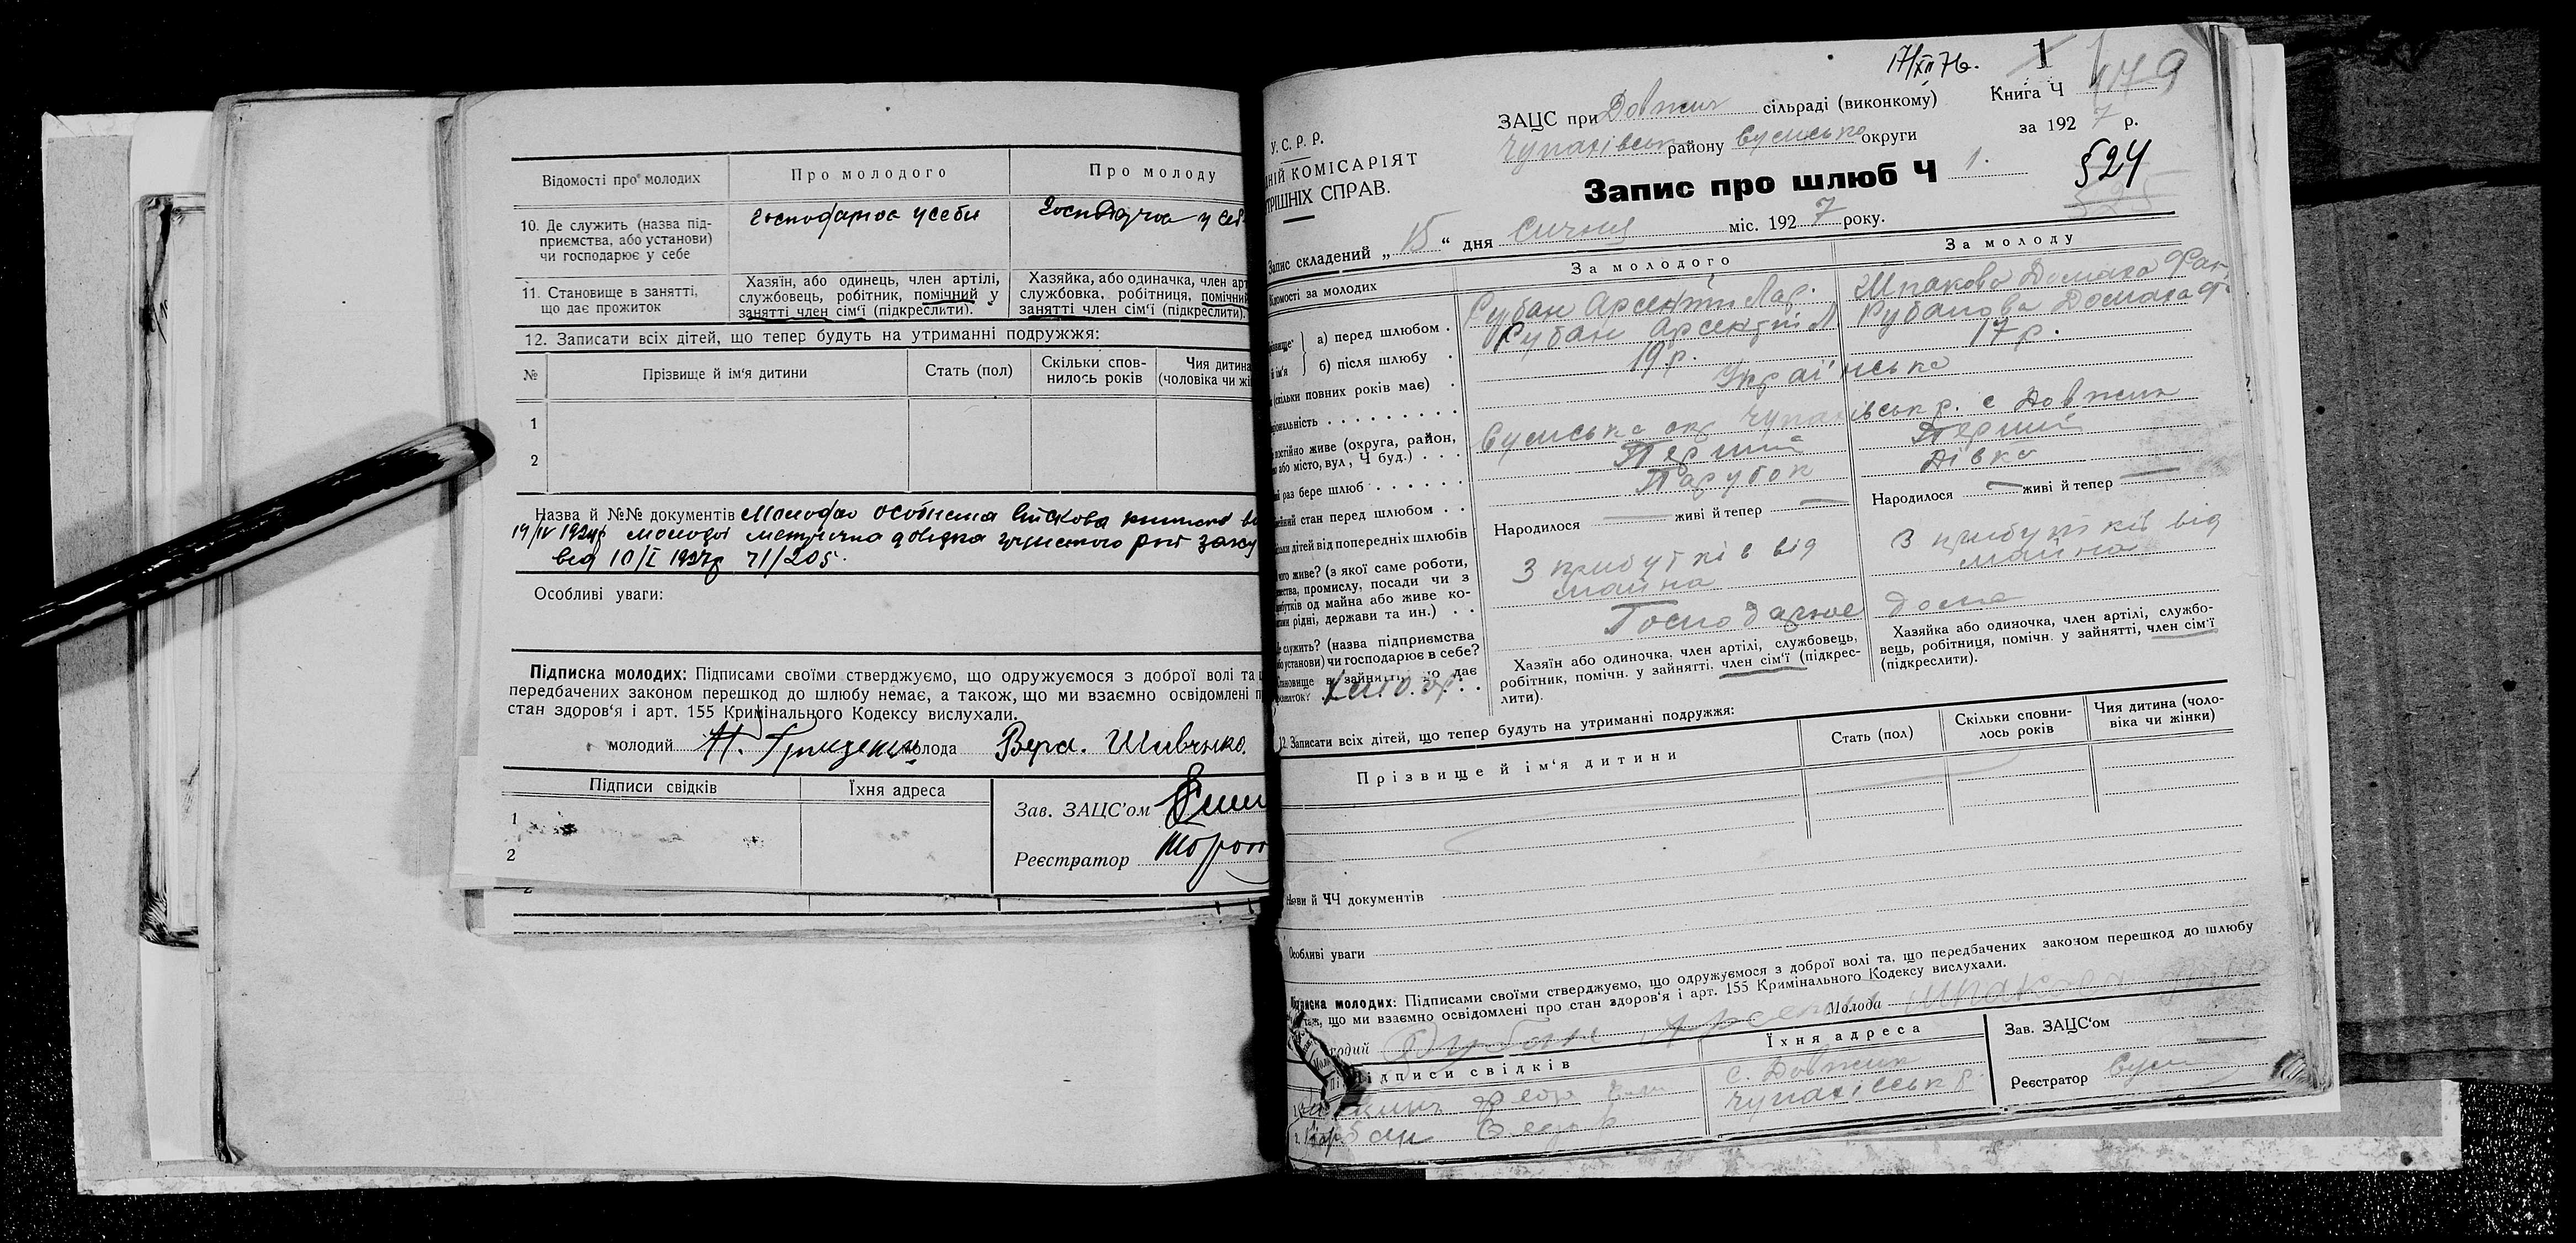 Відомості про молодих
Про молодого
Про молоду
10. Де служить (назва під-
приємства, або установи)
чи господарює у себе
господарює у себи
господарює у себ
11. Становище в занятті,
що дає прожиток
Хазяїн, або одинець, член артілі,
службовець, робітник, помічний у
занятті член сім'ї (підкреслити).
Хазяйка, або одиначка, член арт
службовка, робітниця, помічний
занятті член сім'ї (підкреслити).
12. Записати всіх дітей, що тепер будуть на утриманні подружжя:
№
Прізвище й ім'я дитини
Стать (пол)
Скільки спов-
нилось років
Чия дитина
(чоловіка чи жі
1
2
Назва й №№ документів Молодого особиста
молодої метрична довідка
від 10/I 1927р 71/205.
Особливі уваги:
Підписка молодих: Підписами своїми стверджуємо, що одружуємося з доброї волі та
передбачених законом перешкод до шлюбу немає, а також, що ми взаємно освідомлені п
стан здоров'я і арт. 155 Кримінального Кодексу вислухали.
молодий Н. Грищенко молода Вера. Шивченко.
Підписи свідків
Їхня адреса
1
2
Зав. ЗАЦС'ом
Реєстратор
17/XII 76.
1
179
У. С. Р. Р.
НІЙ КОМІСАРІЯТ
ТРІШНІХ СПРАВ.
ЗАЦС при Довжик сільраді (виконкому)
Чупахівськ району Сумсько округи
Книга Ч
за 1927 р.
Запис про шлюб Ч 1.
§24
Запис складений „15" дня Січня міс. 1927 року.
Відомості за молодих
За молодого
За молоду
а) перед шлюбом
Рубан Арсентій Лаг.
Шпакова Домаха Фак.
б) після шлюбу
й ім'я
Рубан Арсентій Л
Рубанова Домаха Ф.
(скільки повних років має)
19 р.
17 р.
Українська
постійно живе (округа, район,
або місто, вул, Ч буд.)
Сумська окр Чупахівськ р. с Довжик
раз бере шлюб
Перший
Перший
стан перед шлюбом
Парубок
Дівка
дітей від попередніх шлюбів
Народилося — живі й тепер —
Народилося — живі й тепер —
живе? (з якої саме роботи,
промислу, посади чи з
од майна або живе ко-
рідні, держави та ин.)
З прибутків від
майна
З прибутків від
майна
служить? (назва підприємства
або установи) чи господарює в себе?
Господарює дома
Становище в зайнятті що дає
Хазяїн або одиночка, член артілі, службовець,
робітник, помічн. у зайнятті, член сім'ї (підкрес-
лити).
Хазяйка або одиночка, член артілі, службо-
вець, робітниця, помічн. у зайнятті, член сім'ї
(підкреслити).
12. Записати всіх дітей, що тепер будуть на утриманні подружжя:
Прізвище й ім'я дитини
Стать (пол)
Скільки сповни-
лось років
Чия дитина (чоло-
віка чи жінки)
й ЧЧ документів
Особливі уваги
Підписка молодих: Підписами своїми стверджуємо, що одружуємося з доброї волі та, що передбачених законом перешкод до шлюбу
що ми взаємно освідомлені про стан здоров'я і арт. 155 Кримінального Кодексу вислухали.
Рубан Молода Шпакова
Підписи свідків
Їхня адреса
с. Довжик
Чупахівськ р
2.
Зав. ЗАЦС'ом
Реєстратор